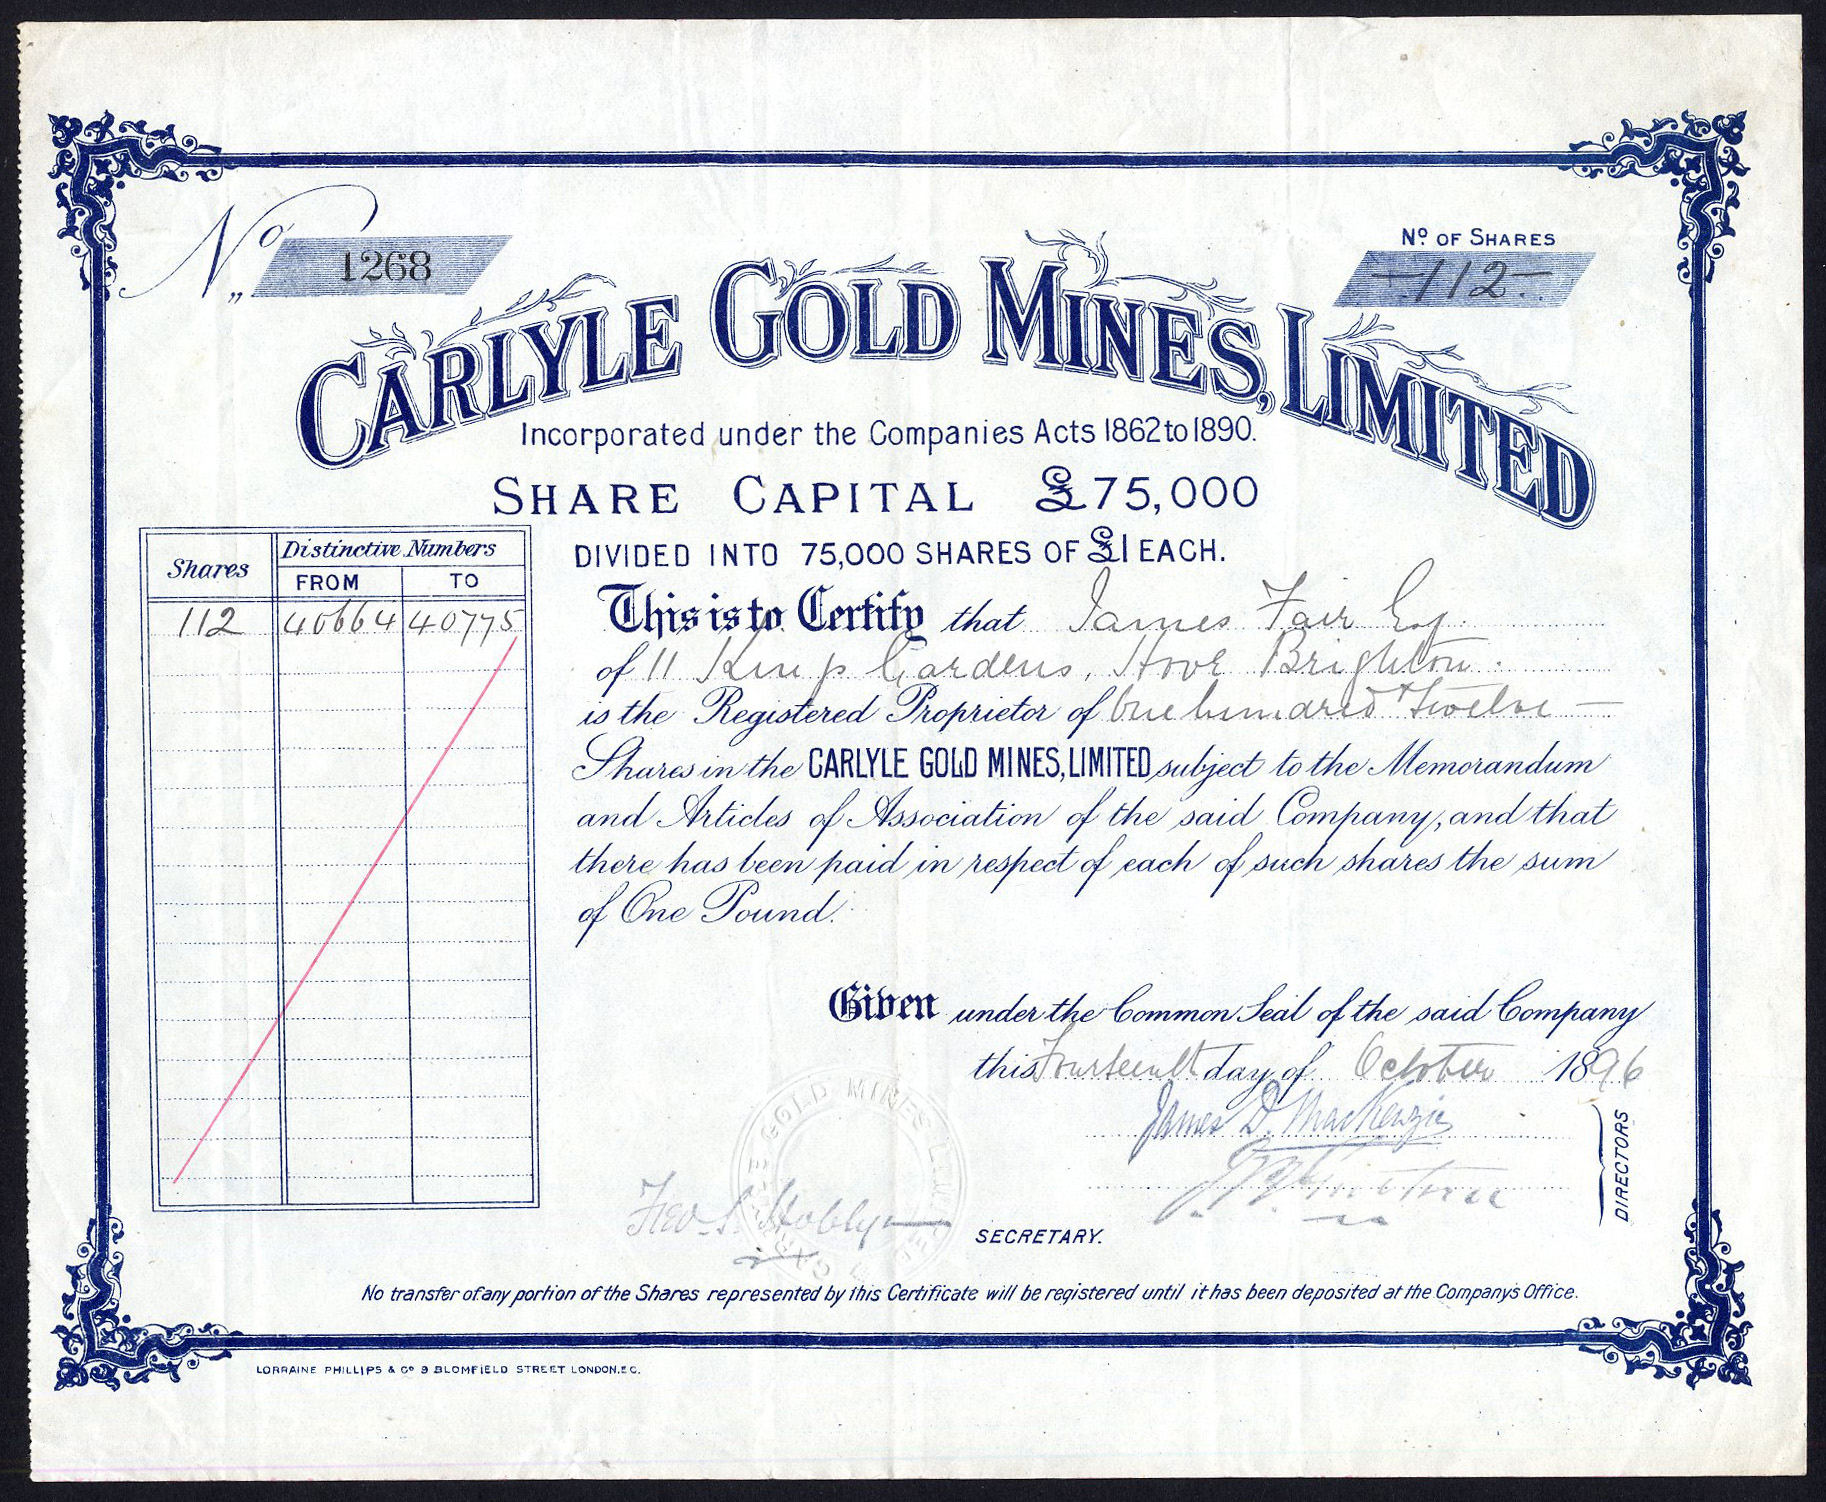 Nº 1268
Nº OF SHARES
112
CARLYLE GOLD MINES, LIMITED
Incorporated under the Companies Acts 1862 to 1890.
SHARE CAPITAL £75,000
DIVIDED INTO 75,000 SHARES OF £1 EACH.
Shares Distinctive Numbers
FROM TO
112 40664 40775
This is to Certify that James Fair Esq
of 11 Kings Gardens, Hove Brighton.
is the Registered Proprietor of One hundred & twelve —
Shares in the CARLYLE GOLD MINES, LIMITED subject to the Memorandum
and Articles of Association of the said Company, and that
there has been paid in respect of each of such shares the sum
of One Pound.
Given under the Common Seal of the said Company
this Fourteenth day of October 1896
James D. MacKenzie
DIRECTORS
SECRETARY.
No transfer of any portion of the Shares represented by this Certificate will be registered until it has been deposited at the Company's Office.
LORRAINE PHILLIPS & Cº 9 BLOMFIELD STREET LONDON. E.C.